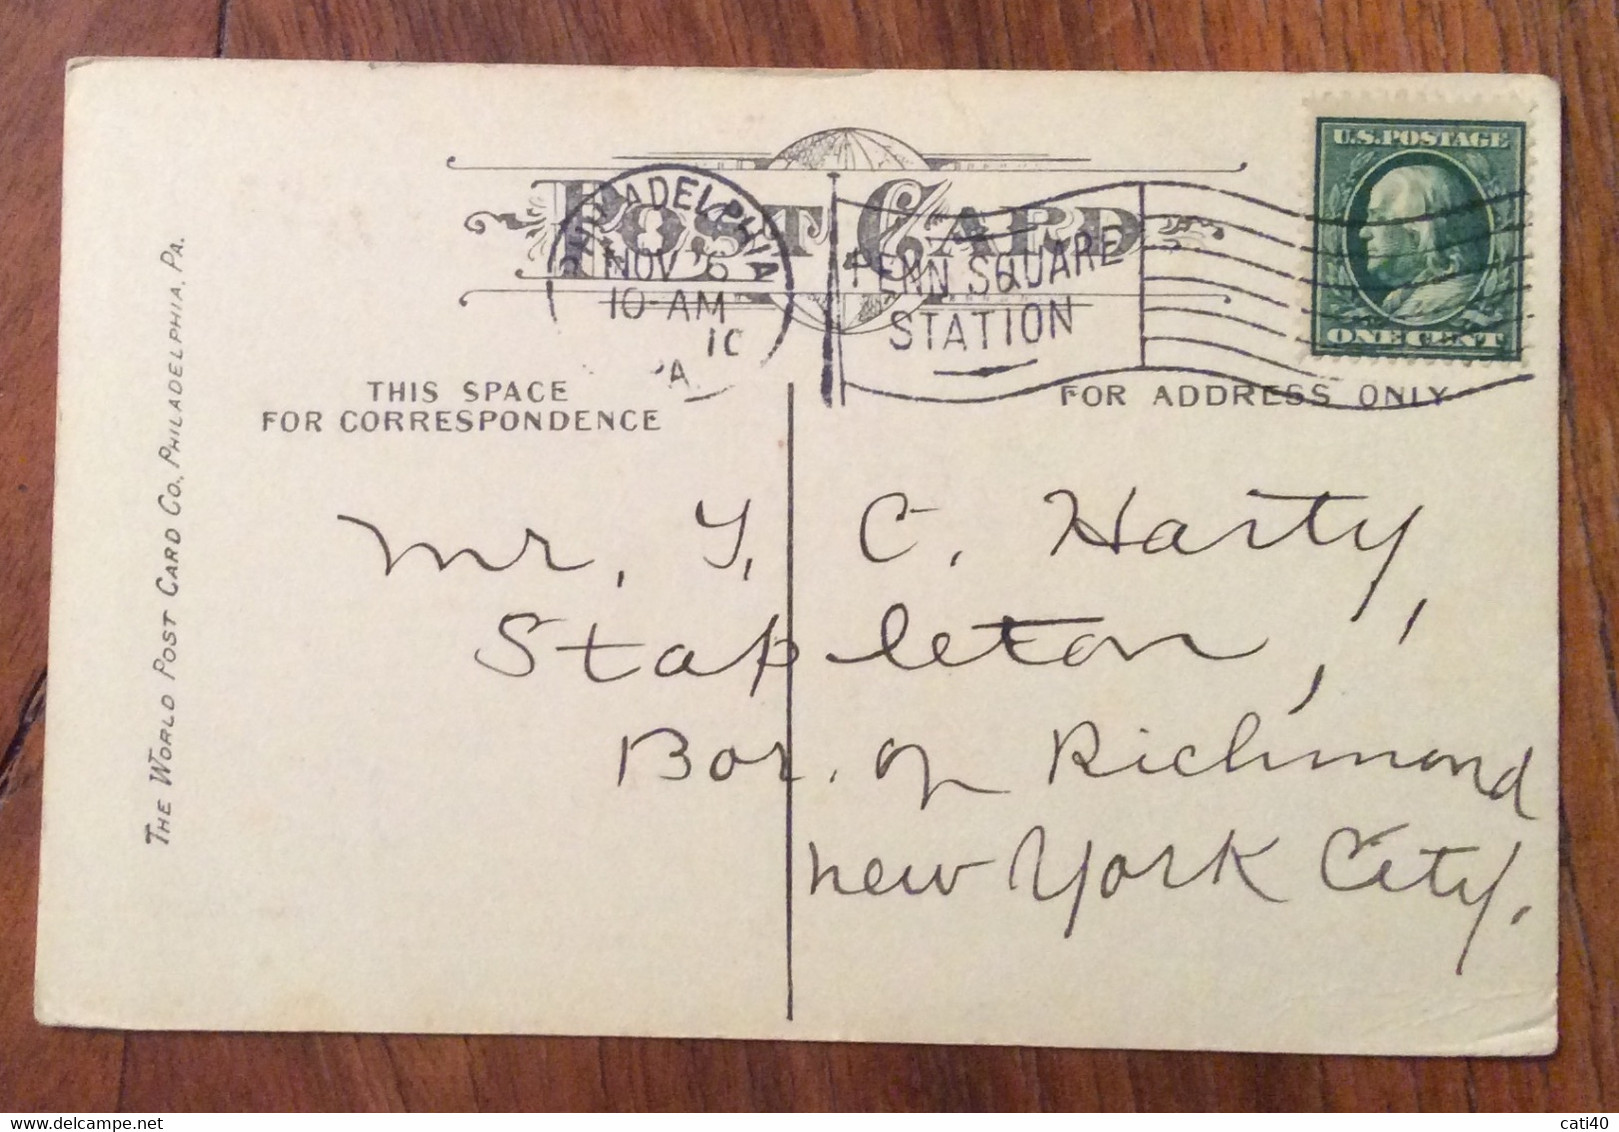 POST CARD
PHILADELPHIA
NOV 6
10-AM
10
PENN SQUARE
STATION
U.S.POSTAGE
ONE CENT
THIS SPACE
FOR CORRESPONDENCE
FOR ADDRESS ONLY
THE WORLD POST CARD CO., PHILADELPHIA, PA.
Mr. Y. C. Harty,
Stapleton,
Bor. of Richmond
New York City.
cati40